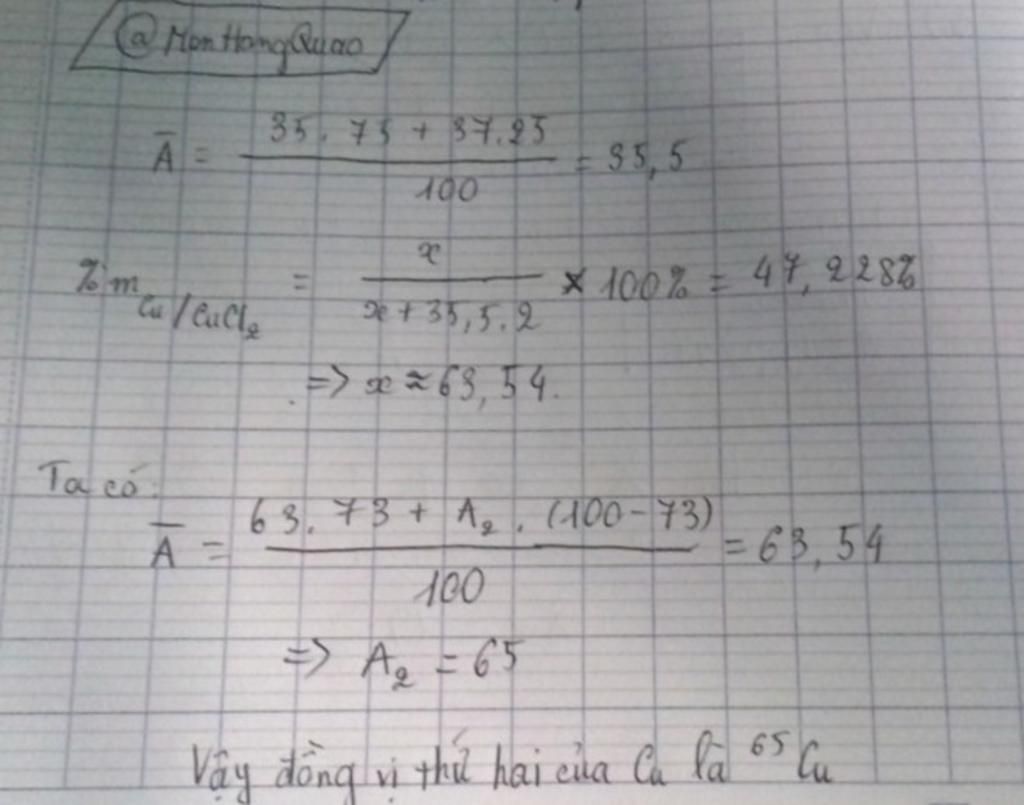 @MonHangQuao
Ā = (35.75 + 37.25) / 100 = 35,5
%m Cu/CuCl₂ = x / (x + 35,5.2) × 100% = 47,228%
=> x ≈ 63,54.
Ta có:
Ā = (63.73 + A₂.(100-73)) / 100 = 63,54
=> A₂ = 65
Vậy đồng vị thứ hai của Cu là ⁶⁵Cu